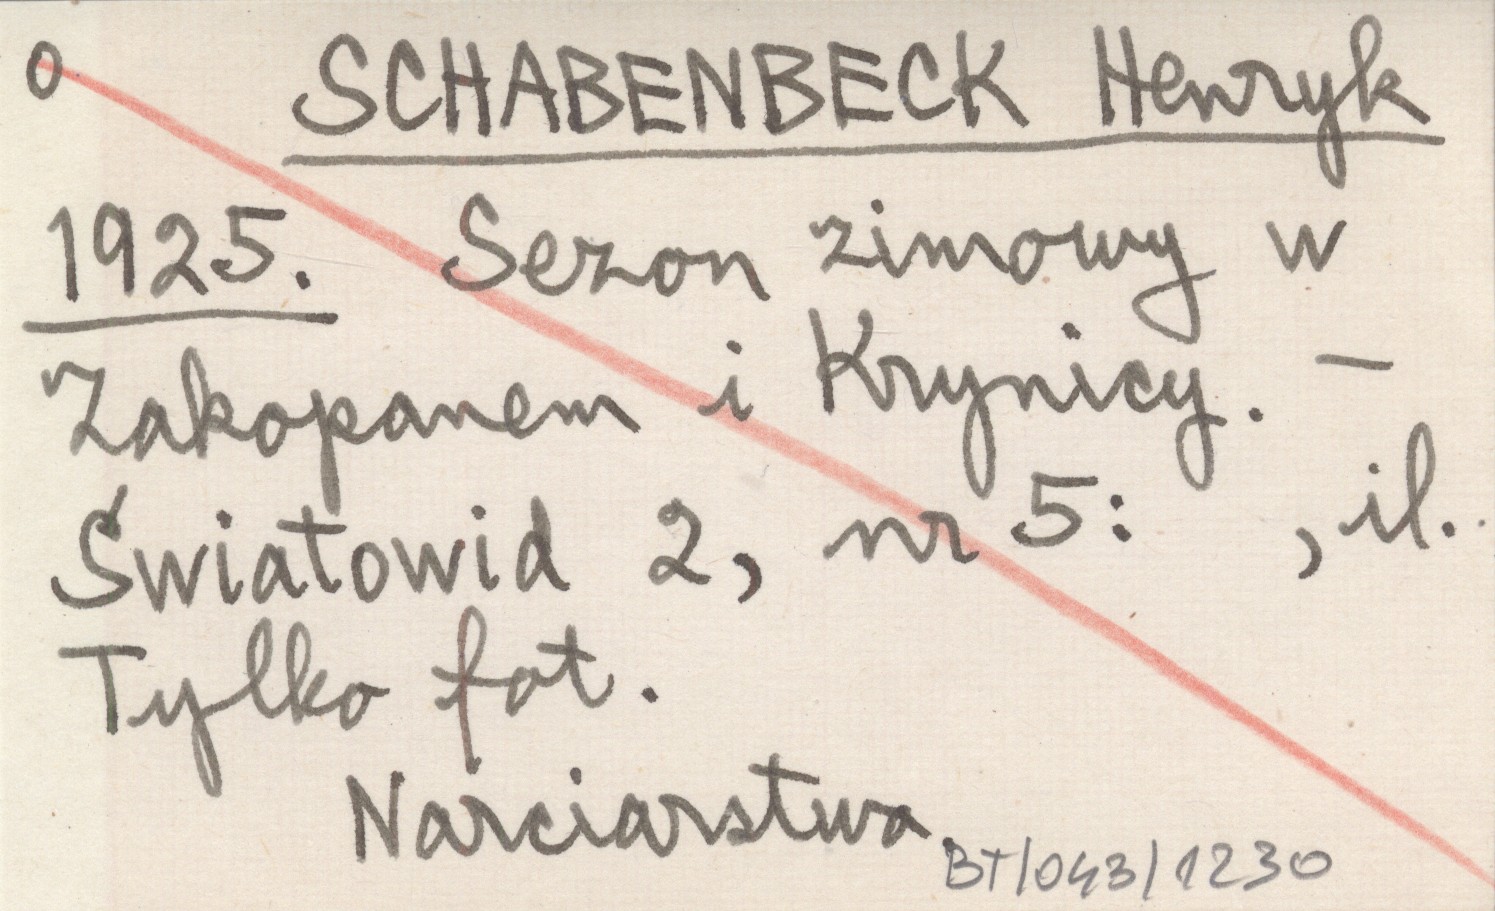 0 SCHABENBECK Henryk
1925. Sezon zimowy w
Zakopanem i Krynicy. –
Światowid 2, nr 5: , il.
Tylko fot.
Narciarstwo.
BT/043/1230